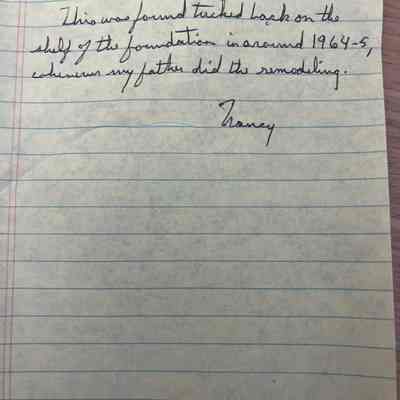 This was found tucked back on the
shelf of the foundation in around 1964-5,
whenever my father did the remodeling.
Nancy